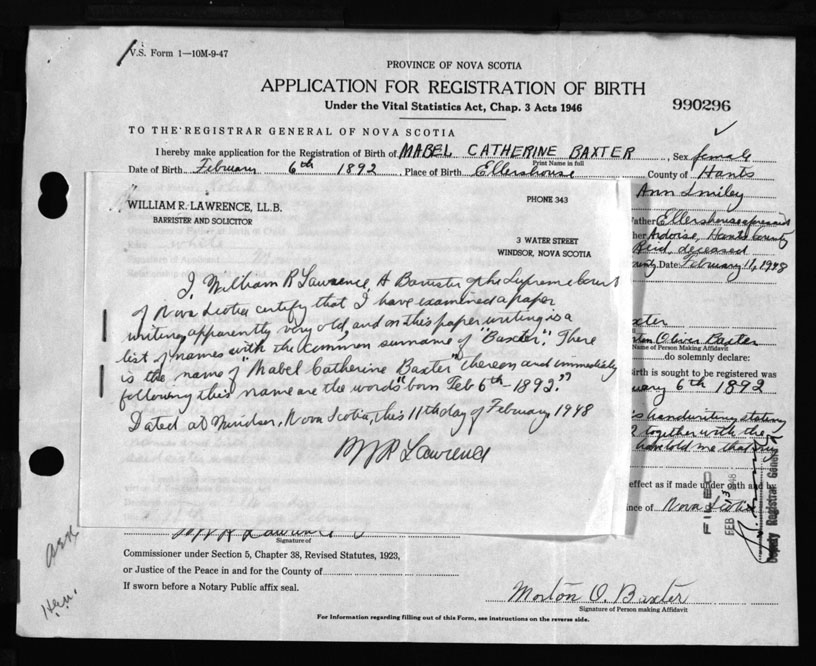 V.S. Form 1—10M-9-47
PROVINCE OF NOVA SCOTIA
APPLICATION FOR REGISTRATION OF BIRTH
Under the Vital Statistics Act, Chap. 3 Acts 1946
990296
TO THE REGISTRAR GENERAL OF NOVA SCOTIA
I hereby make application for the Registration of Birth of MABEL CATHERINE BAXTER, Sex female
Print Name in full
Date of Birth February 6th 1892, Place of Birth Ellershouse County of Hants
WILLIAM R. LAWRENCE, LL.B.
BARRISTER AND SOLICITOR
PHONE 343
3 WATER STREET
WINDSOR, NOVA SCOTIA
I, William R Lawrence, A Barrister of the Supreme Court
of Nova Scotia certify that I have examined a paper
writing, apparently very old, and on this paper writing is a
list of names with the common surname of "Baxter". There
is the name of "Mabel Catherine Baxter" thereon and immediately
following this name are the words "born Feb 6th - 1892."
Dated at Windsor, Nova Scotia, this 11th day of February 1948
W R Lawrence
Ann Smiley
father Ellershouse
her Ardoise, Hants County
Reid, deceased
ounty Date: February 11, 1948
xter
Oliver Baxter
Name of Person Making Affidavit
do solemnly declare:
irth is sought to be registered was
uary 6th 1892
s handwriting stating
together with the
told me that
effect as if made under oath and by
nce of Nova Scotia
FILED
FEB 13 1948
Deputy Registrar General
W R Lawrence
Signature of
Commissioner under Section 5, Chapter 38, Revised Statutes, 1923,
or Justice of the Peace in and for the County of
If sworn before a Notary Public affix seal.
Morton O. Baxter
Signature of Person making Affidavit
For Information regarding filling out of this Form, see instructions on the reverse side.